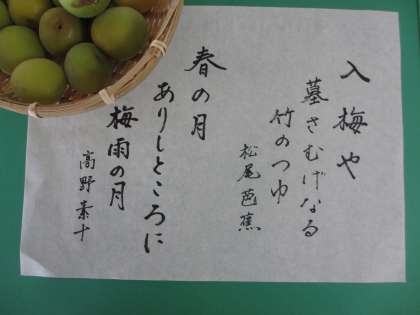 入梅や
墓さむげなる
竹のつゆ
松尾芭蕉
春の月
ありしところに
梅雨の月
高野素十